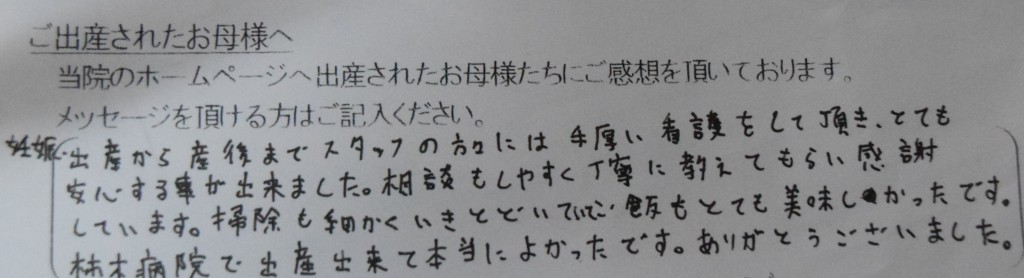 ご出産されたお母様へ
当院のホームページへ出産されたお母様たちにご感想を頂いております。
メッセージを頂ける方はご記入ください。
妊娠、出産から産後までスタッフの方々には手厚い看護をして頂き、とても
安心する事が出来ました。相談もしやすく丁寧に教えてもらい感謝
しています。掃除も細かくいきとどいていてご飯もとても美味しかったです。
柿木病院で出産出来て本当によかったです。ありがとうございました。